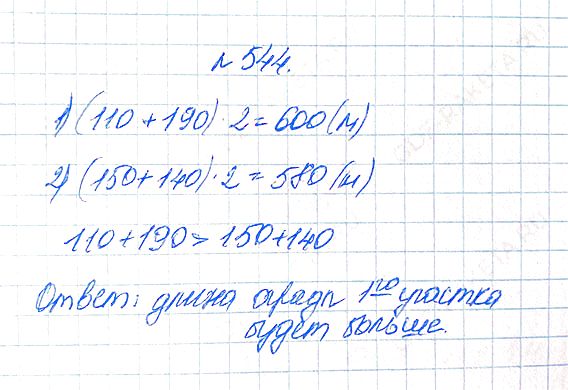 № 544.
1) (110 + 190) · 2 = 600 (м)
2) (150 + 140) · 2 = 580 (м)
110 + 190 > 150 + 140
Ответ: длина ограды 1го участка
будет больше.